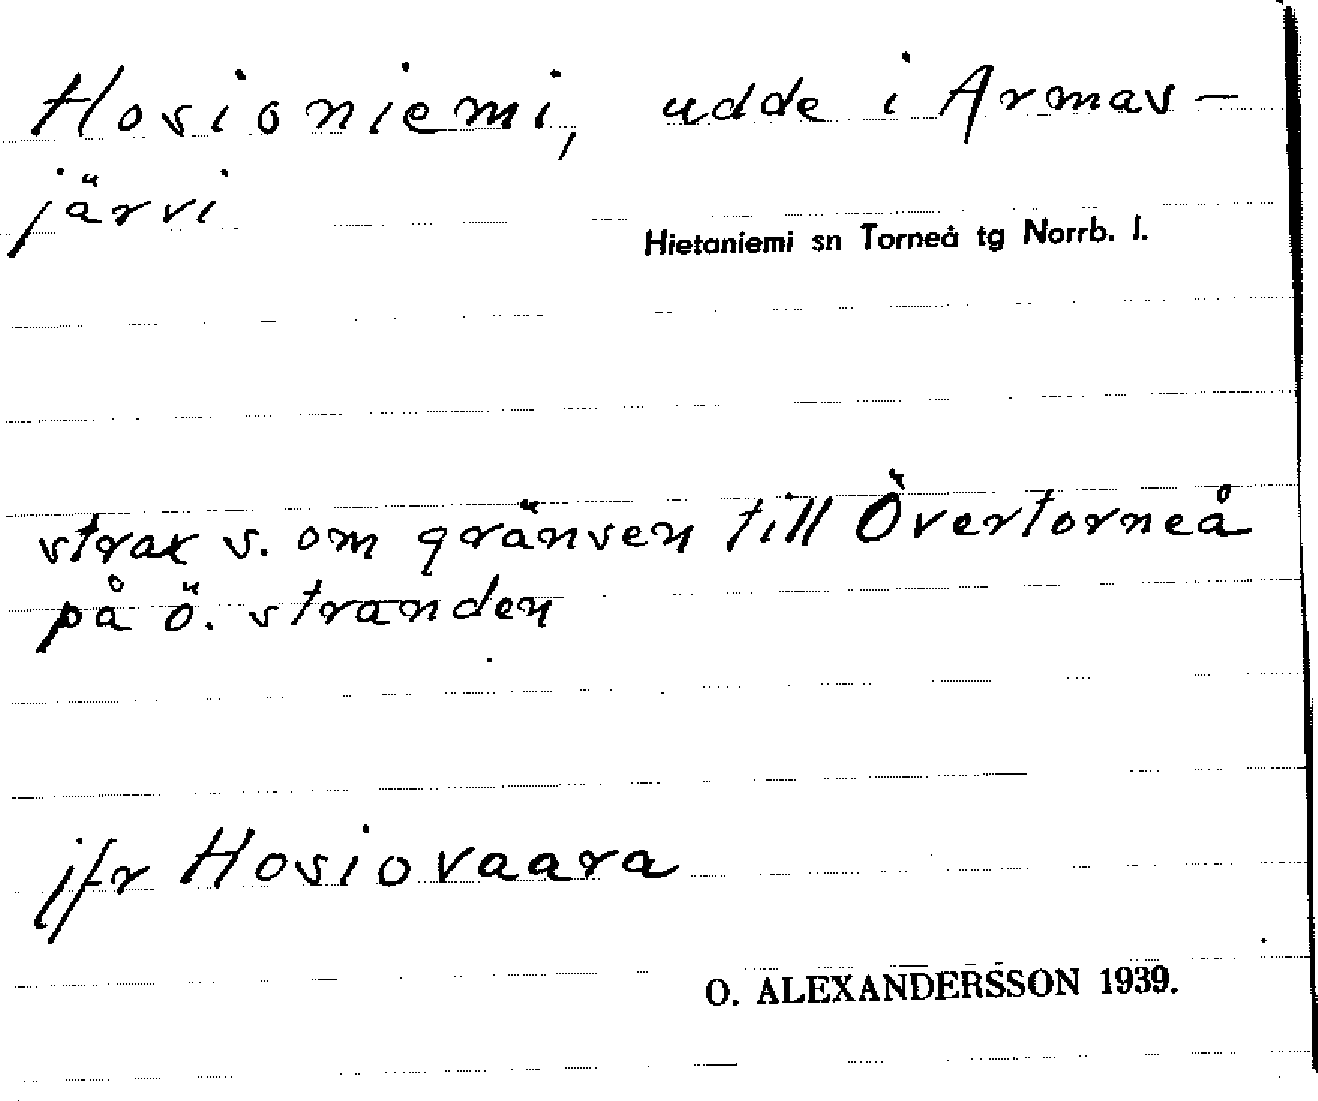 Hosioniemi, udde i Armas-
järvi
Hietaniemi sn Torneå tg Norrb. l.
strax s. om gränsen till Övertorneå
på ö. stranden
jfr Hosiovaara
O. ALEXANDERSSON 1939.